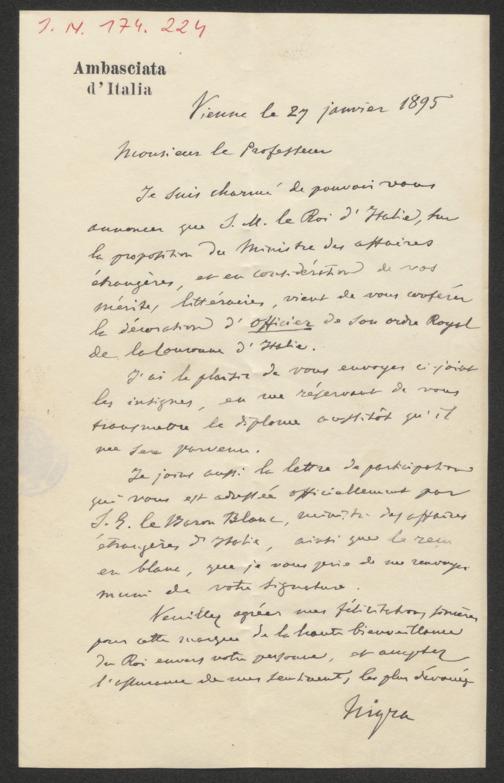 I. N. 174. 224
Ambasciata
d'Italia
Vienne le 27 janvier 1895
Monsieur le Professeur
Je suis charmé de pouvoir vous
annoncer que S. M. le Roi d'Italie, sur
la proposition du Ministre des affaires
étrangères, et en considération de vos
mérites littéraires, vient de vous conférer
la décoration d'Officier de son ordre Royal
de la Couronne d'Italie.
J'ai le plaisir de vous envoyer ci joint
les insignes, en me réservant de vous
transmettre le diplome aussitôt qu'il
me sera parvenu.
Je joins aussi la lettre de participation
qui vous est adressée officiellement par
S. E. le Baron Blanc, ministre des affaires
étrangères d'Italie, ainsi que le reçu
en blanc, que je vous prie de me renvoyer
muni de votre signature.
Veuillez agréer mes félicitations sincères
pour cette marque de la haute bienveillance
du Roi envers votre personne, et acceptez
l'assurance de mes sentiments les plus dévoués
Nigra